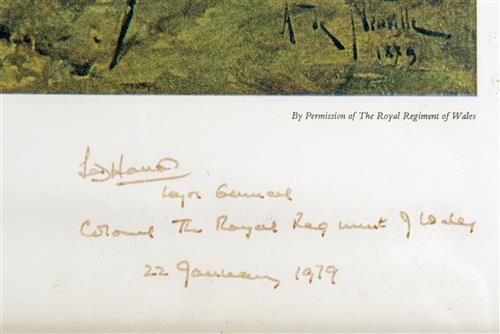 A. de Neuville
1879
By Permission of The Royal Regiment of Wales
Major General
Colonel The Royal Regiment of Wales
22 January 1979